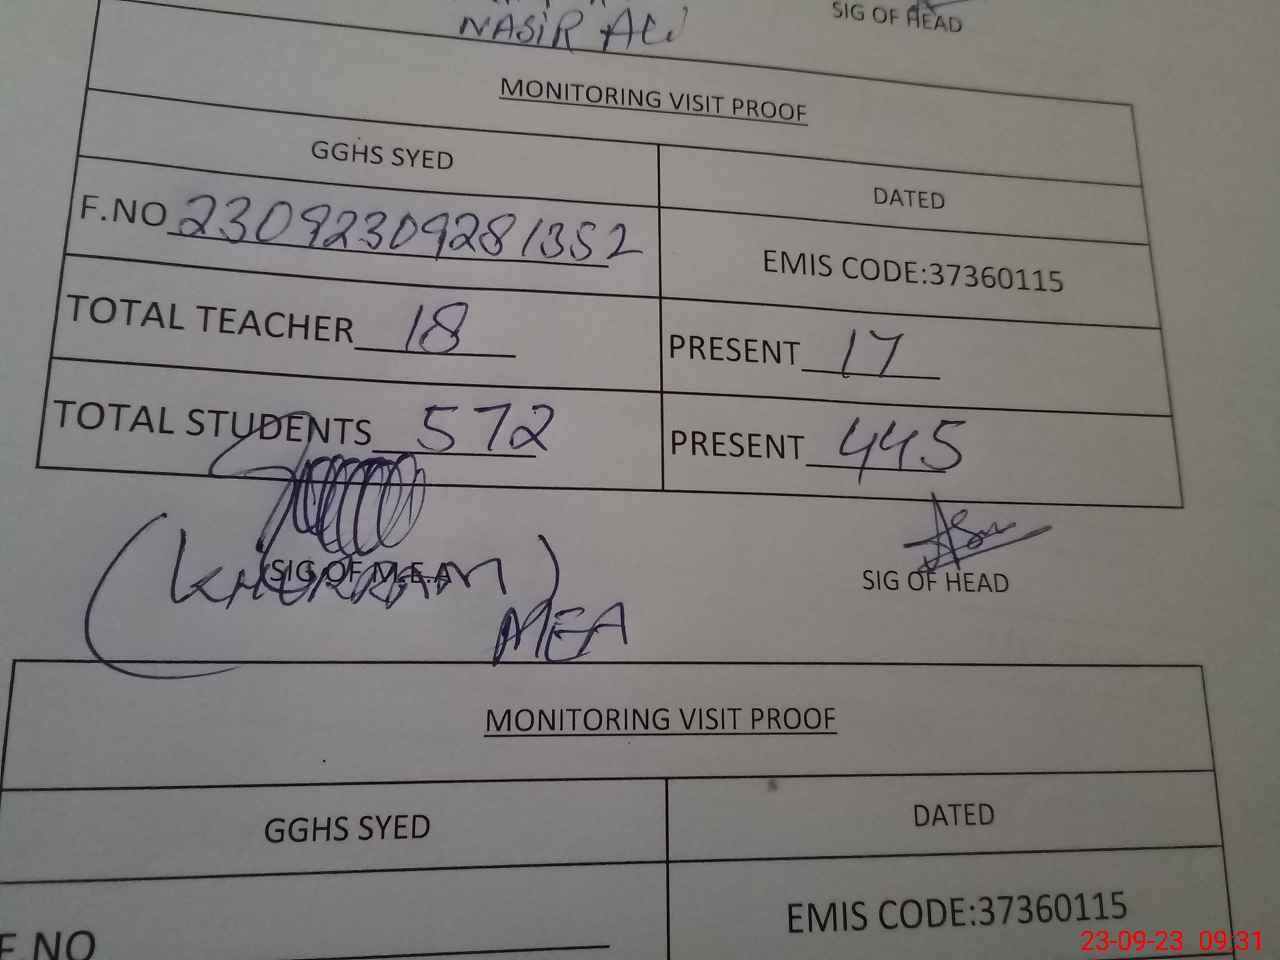 NASIR ALI
SIG OF HEAD
MONITORING VISIT PROOF
GGHS SYED
DATED
F.NO 23092309281352
EMIS CODE:37360115
TOTAL TEACHER 18
PRESENT 17
TOTAL STUDENTS 572
PRESENT 445
SIG OF M.E.A
(KHURRAM)
MEA
SIG OF HEAD
MONITORING VISIT PROOF
GGHS SYED
DATED
F.NO
EMIS CODE:37360115
23-09-23 09:31